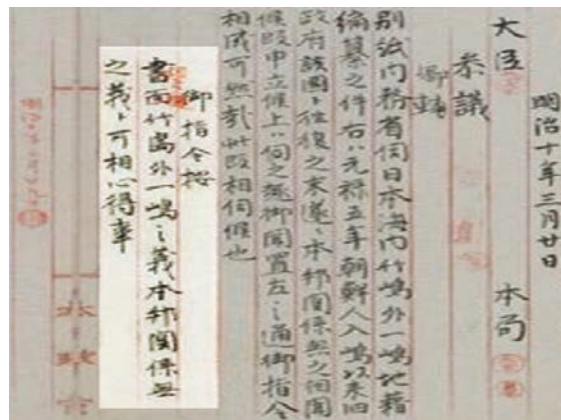 明治十年三月廿日
大臣 本局
参議
卿輔
別紙内務省伺日本海内竹嶋外一嶋地籍
編纂之件右ハ元禄五年朝鮮人入嶋以来旧
政府該國ト往復之末遂ニ本邦関係無之相聞
候段申立候上ハ伺之趣御聞置左之通御指令
相成可然哉此段相伺候也
御指令按
書面竹島外一嶋之義本邦関係無
之義ト可相心得事
太政官